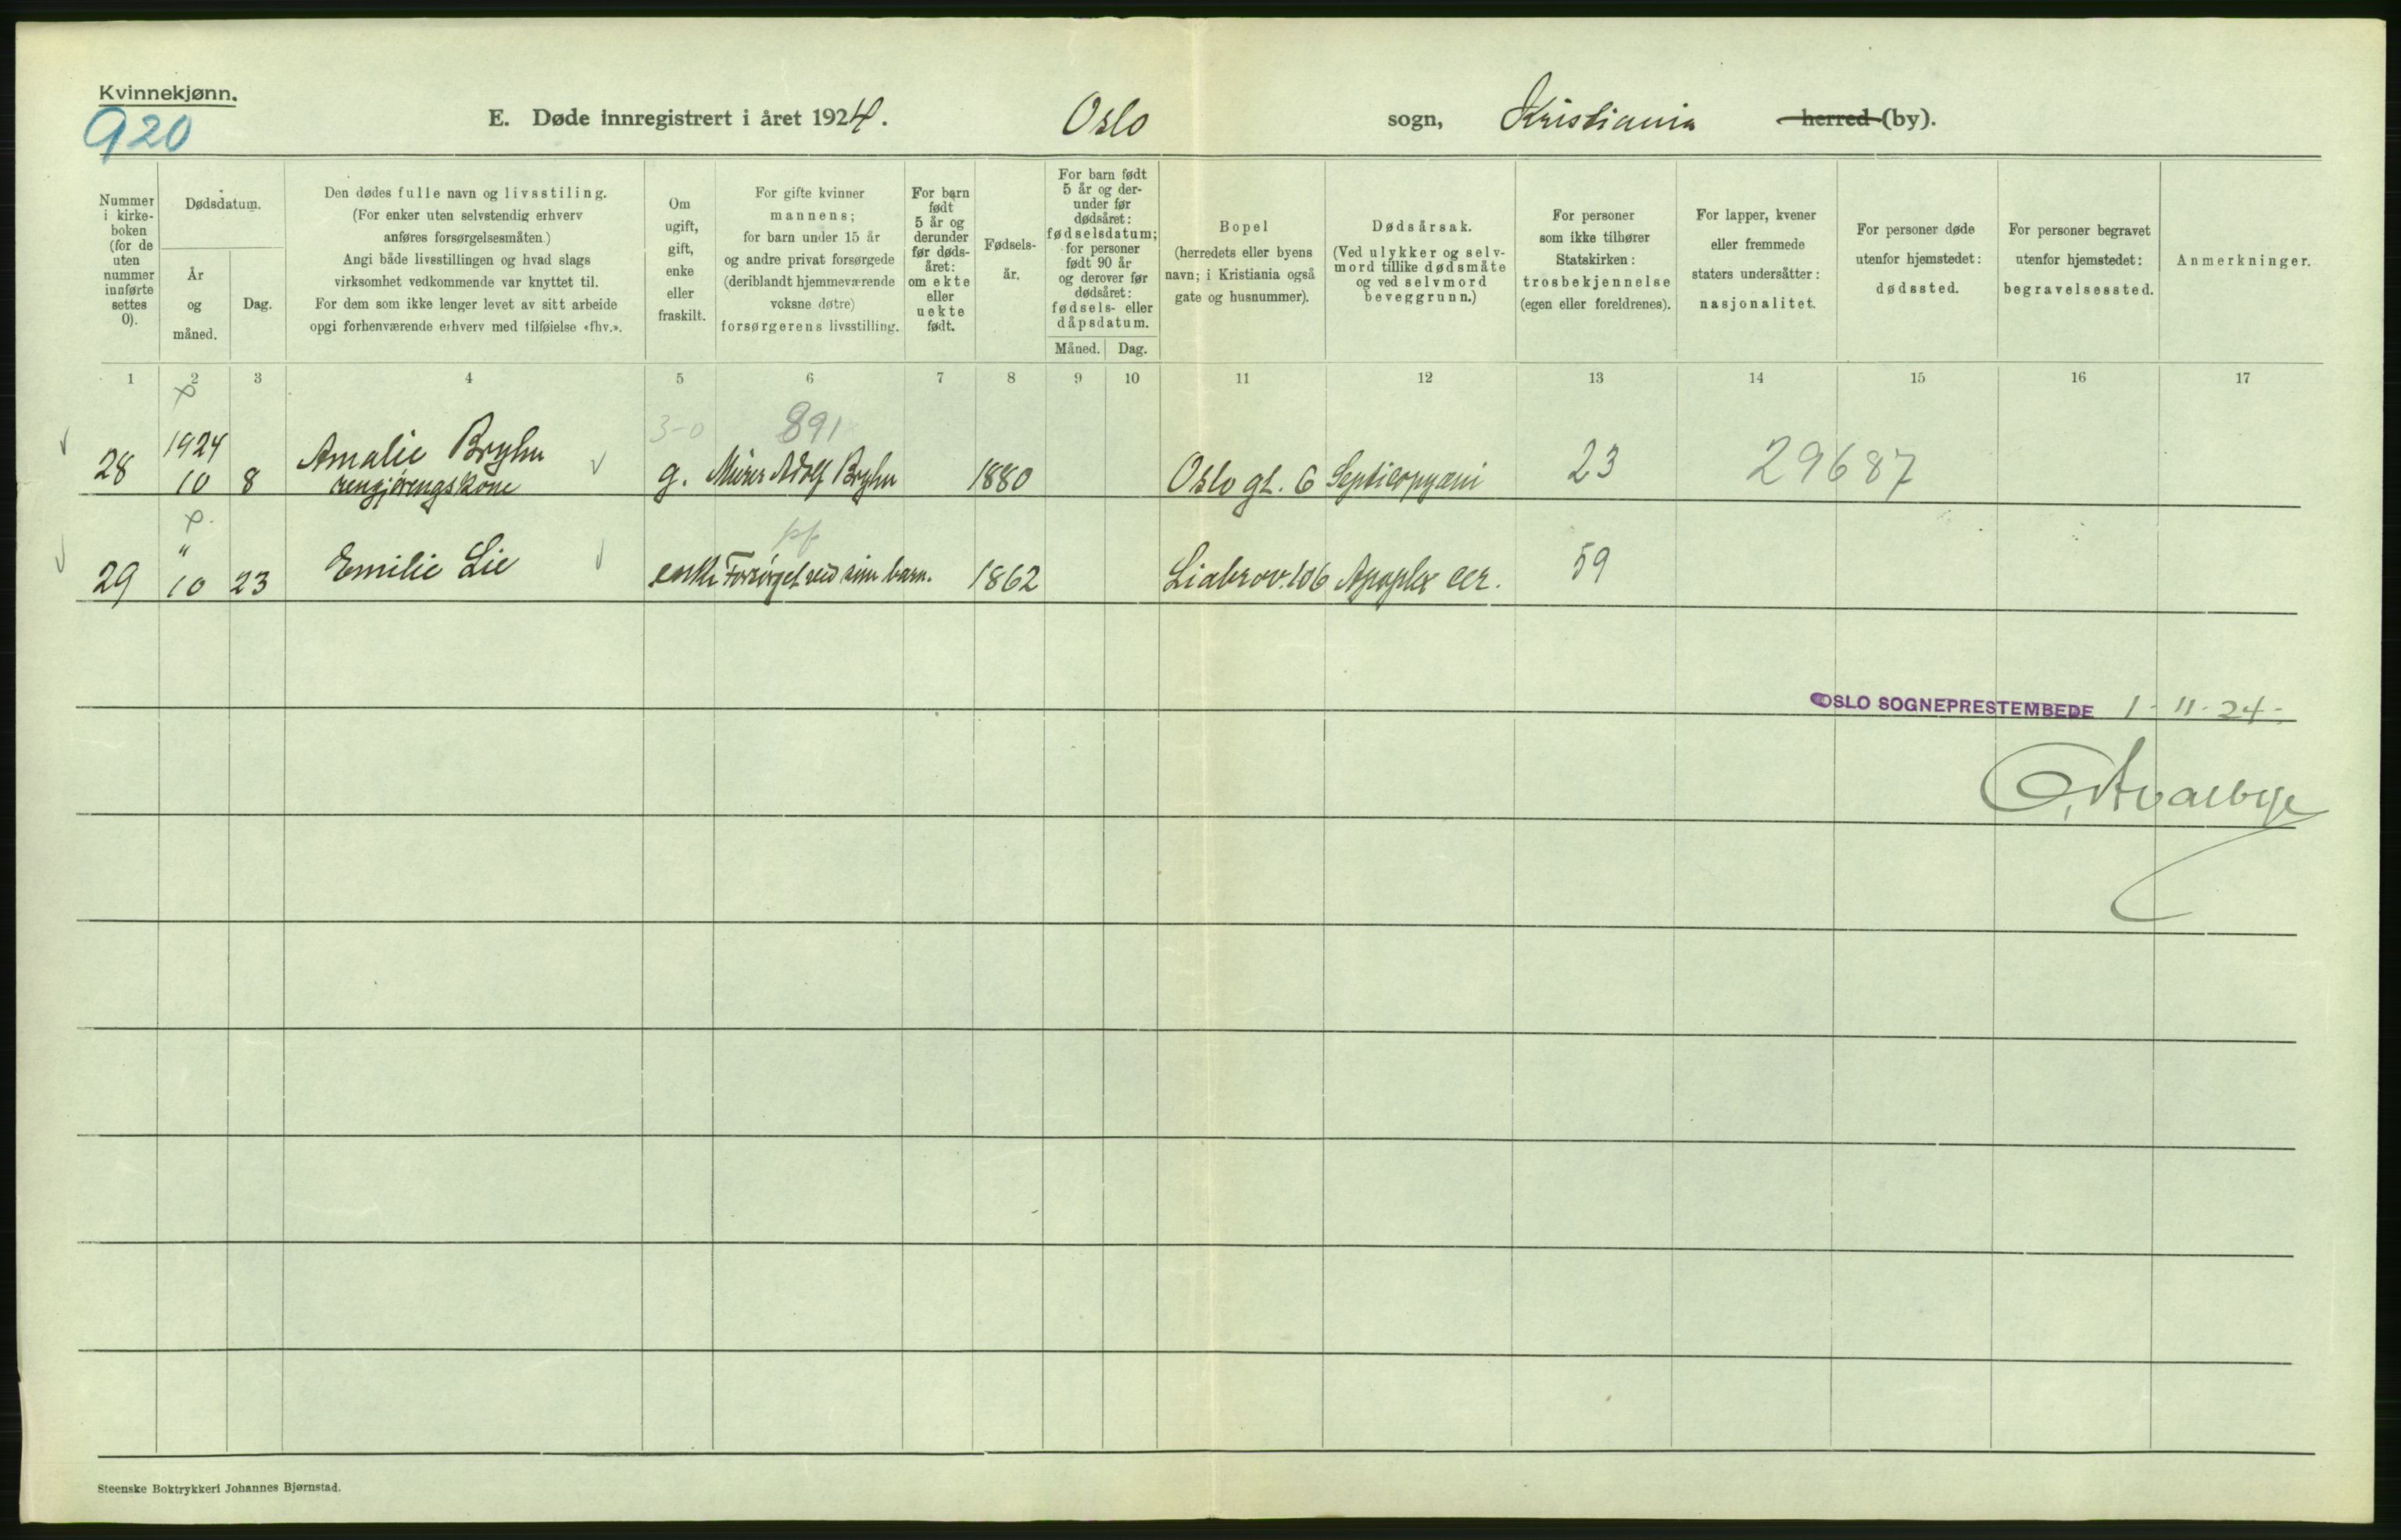 Kvinnekjønn.
920
E. Døde innregistrert i året 1924. Oslo sogn, Kristiania herred (by).
Nummer i kirke-boken (for de uten nummer innførte settes 0).
Dødsdatum.
År og måned.
Dag.
Den dødes fulle navn og livsstiling.
(For enker uten selvstendig erhverv
anføres forsørgelsesmåten.)
Angi både livsstillingen og hvad slags
virksomhet vedkommende var knyttet til.
For dem som ikke lenger levet av sitt arbeide
opgi forhenværende erhverv med tilføielse «fhv.».
Om
ugift,
gift,
enke
eller
fraskilt.
For gifte kvinner
mannens;
for barn under 15 år
og andre privat forsørgede
(deriblandt hjemmeværende
voksne døtre)
forsørgerens livsstilling.
For barn
født
5 år og
derunder
før døds-
året:
om ekte
eller
uekte
født.
Fødsels-
år.
For barn født
5 år og der-
under før
dødsåret:
fødselsdatum;
for personer
født 90 år
og derover før
dødsåret:
fødsels- eller
dåpsdatum.
Måned. Dag.
Bopel
(herredets eller byens
navn; i Kristiania også
gate og husnummer).
Dødsårsak.
(Ved ulykker og selv-
mord tillike dødsmåte
og ved selvmord
beveggrunn.)
For personer
som ikke tilhører
Statskirken:
trosbekjennelse
(egen eller foreldrenes).
For lapper, kvener
eller fremmede
staters undersåtter:
nasjonalitet.
For personer døde
utenfor hjemstedet:
dødssted.
For personer begravet
utenfor hjemstedet:
begravelsessted.
Anmerkninger.
1 2 3 4 5 6 7 8 9 10 11 12 13 14 15 16 17
3-0 891
28 1924 10 8 Amalie Bryhn g. Murer Adolf Bryhn 1880 Oslo gt. 6 Septicopyæmi 23 29687
rengjørengskone
pf
29 " 10 23 Emilie Lie enke Forsørget ved sine barn. 1862 Liabrov. 106 Apoplex cer. 59
OSLO SOGNEPRESTEMBEDE 1-11-24-
Steenske Boktrykkeri Johannes Bjørnstad.